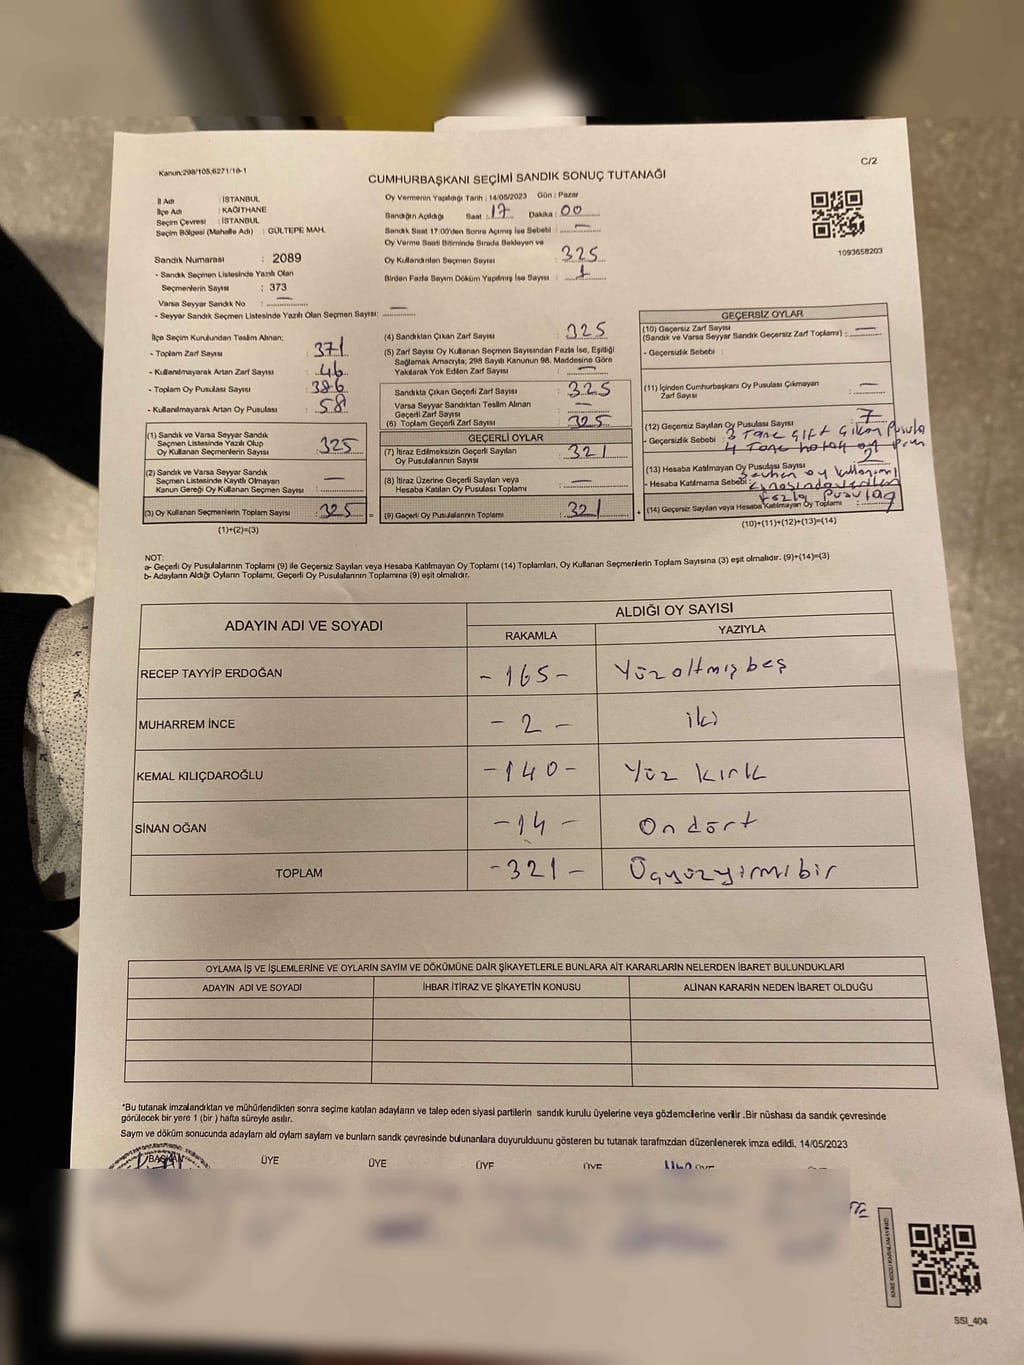 Kanun:298/105,6271/18-1
C/2
CUMHURBAŞKANI SEÇİMİ SANDIK SONUÇ TUTANAĞI
İl Adı : İSTANBUL
İlçe Adı : KAĞITHANE
Seçim Çevresi : İSTANBUL
Seçim Bölgesi (Mahalle Adı) : GÜLTEPE MAH.
Sandık Numarası : 2089
- Sandık Seçmen Listesinde Yazılı Olan
Seçmenlerin Sayısı : 373
Varsa Seyyar Sandık No : —
- Seyyar Sandık Seçmen Listesinde Yazılı Olan Seçmen Sayısı: —
Oy Vermenin Yapıldığı Tarih : 14/05/2023 Gün : Pazar
Sandığın Açıldığı Saat : 17 Dakika : 00
Sandık Saat 17:00'den Sonra Açılmış İse Sebebi : —
Oy Verme Saati Bitiminde Sırada Bekleyen ve
Oy Kullandırılan Seçmen Sayısı : 325
Birden Fazla Sayım Döküm Yapılmış İse Sayısı : 1
1093658203
İlçe Seçim Kurulundan Teslim Alınan;
- Toplam Zarf Sayısı : 371
- Kullanılmayarak Artan Zarf Sayısı : 46
- Toplam Oy Pusulası Sayısı :
- Kullanılmayarak Artan Oy Pusulası : 58
(1) Sandık ve Varsa Seyyar Sandık
Seçmen Listesinde Yazılı Olup
Oy Kullanan Seçmenlerin Sayısı : 325
(2) Sandık ve Varsa Seyyar Sandık
Seçmen Listesinde Kayıtlı Olmayan
Kanun Gereği Oy Kullanan Seçmen Sayısı : —
(3) Oy Kullanan Seçmenlerin Toplam Sayısı : 325 =
(1)+(2)=(3)
(4) Sandıktan Çıkan Zarf Sayısı : 325
(5) Zarf Sayısı Oy Kullanan Seçmen Sayısından Fazla İse, Eşitliği
Sağlamak Amacıyla; 298 Sayılı Kanunun 98. Maddesine Göre
Yakılarak Yok Edilen Zarf Sayısı : —
Sandıkta Çıkan Geçerli Zarf Sayısı : 325
Varsa Seyyar Sandıktan Teslim Alınan
Geçerli Zarf Sayısı : —
(6) Toplam Geçerli Zarf Sayısı : 325
GEÇERLİ OYLAR
(7) İtiraz Edilmeksizin Geçerli Sayılan
Oy Pusulalarının Sayısı : 321
(8) İtiraz Üzerine Geçerli Sayılan veya
Hesaba Katılan Oy Pusulası Toplamı : —
(9) Geçerli Oy Pusulalarının Toplamı : 321 +
GEÇERSİZ OYLAR
(10) Geçersiz Zarf Sayısı
(Sandık ve Varsa Seyyar Sandık Geçersiz Zarf Toplamı) : —
- Geçersizlik Sebebi :
(11) İçinden Cumhurbaşkanı Oy Pusulası Çıkmayan
Zarf Sayısı : —
(12) Geçersiz Sayılan Oy Pusulası Sayısı : 7
- Geçersizlik Sebebi : 3 Tane Çift Çıkan Pusula
4 Tane oy
(13) Hesaba Katılmayan Oy Pusulası Sayısı : 2
- Hesaba Katılmama Sebebi : oy
Fazla Pusula
(14) Geçersiz Sayılan veya Hesaba Katılmayan Oy Toplamı :
(10)+(11)+(12)+(13)=(14)
NOT:
a- Geçerli Oy Pusulalarının Toplamı (9) ile Geçersiz Sayılan veya Hesaba Katılmayan Oy Toplamı (14) Toplamları, Oy Kullanan Seçmenlerin Toplam Sayısına (3) eşit olmalıdır. (9)+(14)=(3)
b- Adayların Aldığı Oyların Toplamı, Geçerli Oy Pusulalarının Toplamına (9) eşit olmalıdır.
ADAYIN ADI VE SOYADI
ALDIĞI OY SAYISI
RAKAMLA YAZIYLA
RECEP TAYYİP ERDOĞAN -165- Yüzaltmışbeş
MUHARREM İNCE -2- iki
KEMAL KILIÇDAROĞLU -140- Yüz kırk
SİNAN OĞAN -14- On dört
TOPLAM -321- Üçyüzyirmibir
OYLAMA İŞ VE İŞLEMLERİNE VE OYLARIN SAYIM VE DÖKÜMÜNE DAİR ŞİKAYETLERLE BUNLARA AİT KARARLARIN NELERDEN İBARET BULUNDUKLARI
ADAYIN ADI VE SOYADI İHBAR İTİRAZ VE ŞİKAYETİN KONUSU ALINAN KARARIN NEDEN İBARET OLDUĞU
*Bu tutanak imzalandıktan ve mühürlendikten sonra seçime katılan adayların ve talep eden siyasi partilerin sandık kurulu üyelerine veya gözlemcilerine verilir .Bir nüshası da sandık çevresinde
görülecek bir yere 1 (bir ) hafta süreyle asılır.
Sayım ve döküm sonucunda adayların ald oylarn saylarn ve bunlarn sandk çevresinde bulunanlara duyurulduunu gösteren bu tutanak tarafmzdan düzenlenerek imza edildi. 14/05/2023
BAŞKAN ÜYE ÜYE ÜYE ÜYE ÜYE
SSI_404